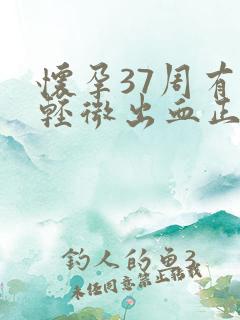 懷孕37周有
輕微出血正
釣人的魚3
未任同意禁止轉載